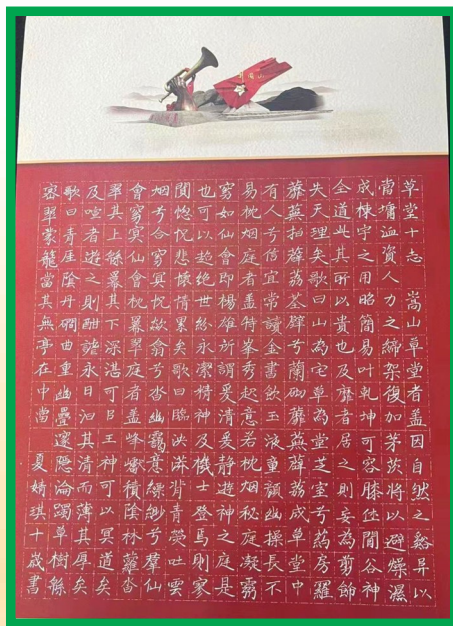 草堂十志 嵩山草堂者盖因自然之谿异以
當墉洫资人力之締架復加茅茨將以避燥濕
成棟宇之用昭簡易叶乾坤可容膝位閒谷神
全道此其所以貴也及靡者居之則妄為剪飾
失天理矣歌曰山為宅草為堂芝室兮葯房羅
蘼蕪拍薜荔荃壁兮蘭砌蘼蕪薜荔成草堂中
有人兮信宜常讀金書飲玉液童顏幽操長不
易枕烟庭者盖特峯秀起意若枕烟秘庭凝窅
窅如仙會即楊雄所謂爰清爰静遊神之庭是
也可以超絕世紛永潔精神及機士登焉則寥
閴惚怳悲懷情累矣歌曰臨泱漭背青熒世雲
烟兮合窅冥怳欻翕兮沓幽靄意縹緲兮羣仙
會窅冥仙會枕翠庭者盖峰巘積陰林蘿沓
翠其上綿羃其下深湛可王神可以冥道矣
及喧者遊之則酣謔永日汩其清而薄其厚矣
歌曰青崖陰丹磵曲重幽疊邃隱淪躅草樹緜
翠蒙龍當其無亭在中當 夏婧琪十歲書